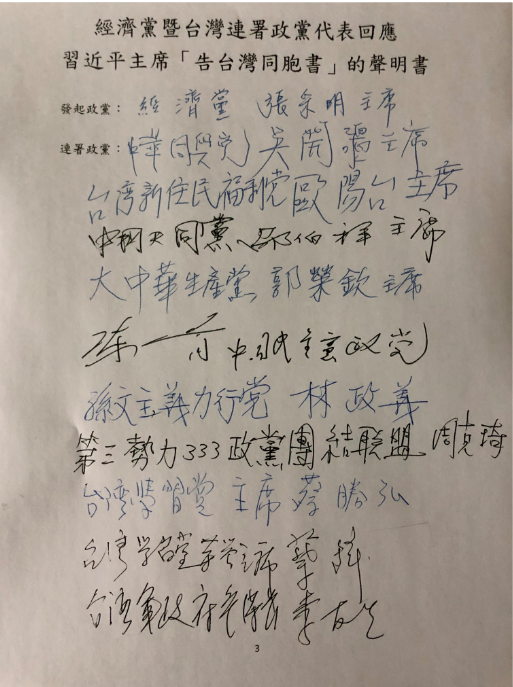 經濟黨暨台灣連署政黨代表回應
習近平主席「告台灣同胞書」的聲明書
發起政黨： 經濟黨 張榮明主席
連署政黨： 中華同興党 吳開疆主席
台湾新住民福利党 歐陽台主席
中國大同黨 邵伯祥主席
大中華生產黨 郭榮欽主席
陳 中 主 政党
孫文主義力行党 林政義
第三勢力333政黨團結聯盟 周克琦
台湾學習党 主席 蔡勝弘
台湾 主席
台湾 政府 李
3